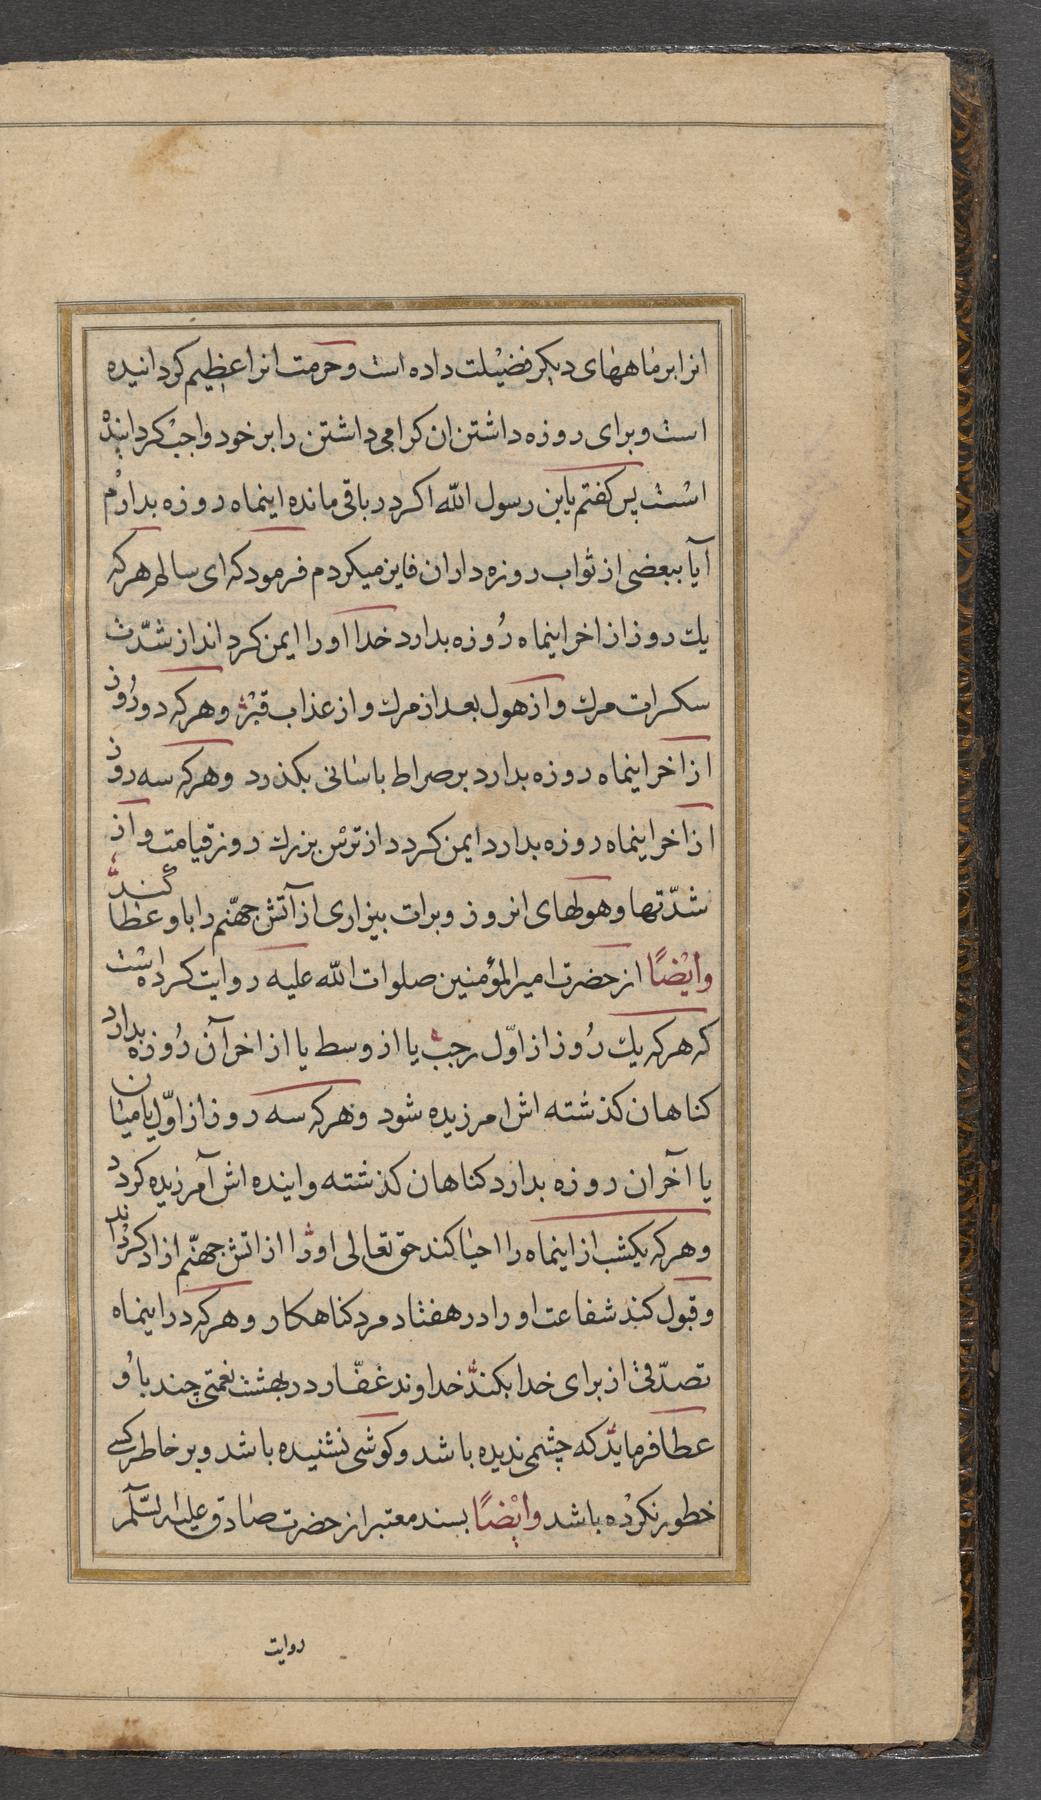 انرا بر ماههای دیکر فضیلت داده است و حرمت انرا عظیم کردانیده
است و برای روزه داشتن ان کرامی داشتن را بر خود واجب کردانیده
است پس کفتم یابن رسول الله اکر در باقی مانده اینماه روزه بدارم
آیا ببعضی از ثواب روزه داران فایز میکردم فرمود که ای سالم هر که
یك روز از اخر اینماه روزه بدارد خدا او را ایمن کرداند از شدّت
سکرات مرك و از هول بعد از مرك و از عذاب قبر و هر که دو روز
از اخر اینماه روزه بدارد بر صراط باسانی بکذرد و هر که سه روز
از اخر اینماه روزه بدارد ایمن کردد از ترس بزرك روز قیامت و از
شدّتها و هولهای انروز و برات بیزاری از آتش جهنّم را باو عطا کند
وایضًا از حضرت امیرالمؤمنین صلوات الله علیه روایت کرده است
که هر که یك روز از اوّل رجب یا از وسط یا از اخر آن روزه بدارد
کناهان کذشته اش امرزیده شود و هر که سه روز از اوّل یا میان
یا آخر ان روزه بدارد کناهان کذشته و اینده اش آمرزیده کردد
و هر که یکشب از اینماه را احیا کند حق تعالی او را از اتش جهنّم ازاد کرداند
و قبول کند شفاعت او را در هفتاد مرد کناهکار و هر که در اینماه
تصدّقی از برای خدا بکند خداوند غفّار در بهشت نعمتی چند باو
عطا فرماید که چشمی ندیده باشد و کوشی نشنیده باشد و بر خاطر کسی
خطور نکرده باشد وایضًا بسند معتبر از حضرت صادق علیه السّلام
روایت